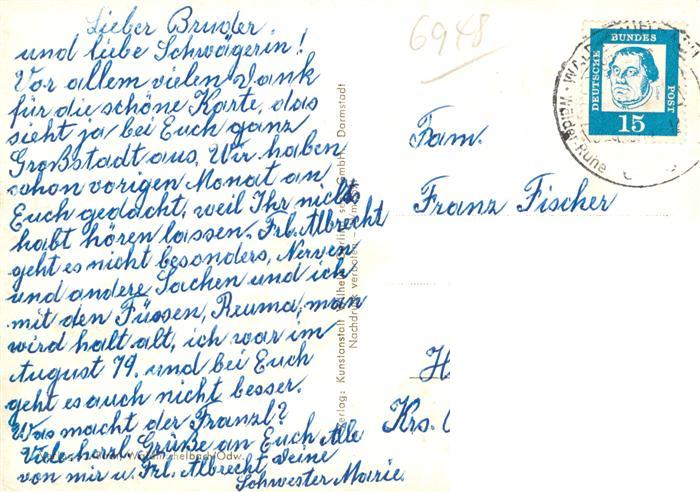 Lieber Bruder
und liebe Schwägerin!
Vor allem vielen Dank
für die schöne Karte, das
sieht ja bei Euch ganz
Großstadt aus. Wir haben
schon vorigen Monat an
Euch gedacht, weil Ihr nichts
habt hören lassen. Frl. Albrecht
geht es nicht besonders, Nerven
und andere Sachen und ich
mit den Füssen, Rruma, man
wird halt alt, ich war im
August 79. und bei Euch
geht es auch nicht besser.
Was macht der Franzl?
Viele herzl. Grüße an Euch Alle
von mir u. Frl. Albrecht, Deine
Schwester Marie.
6948
DEUTSCHE BUNDES POST
15
Fam.
Franz Fischer
H
Krs.
Verlag: Kunstanstalt Wilhelm GmbH., Darmstadt
Nachdruck verboten